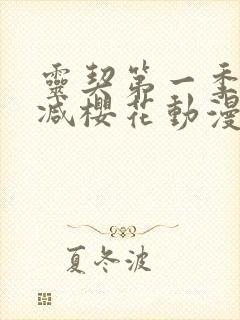 靈契第一季
減櫻花動漫
夏冬波